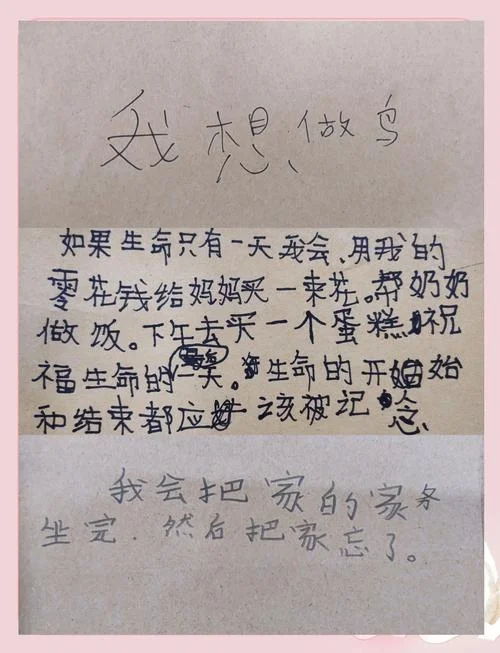 我想做鸟
如果生命只有一天我会、用我的
零花钱给妈妈买一束花。帮奶奶
做饭。下午去买一个蛋糕祝
福生命的一天。生命的开始
和结束都应该被记念
我会把家的家务
坐完.然后把家忘了。